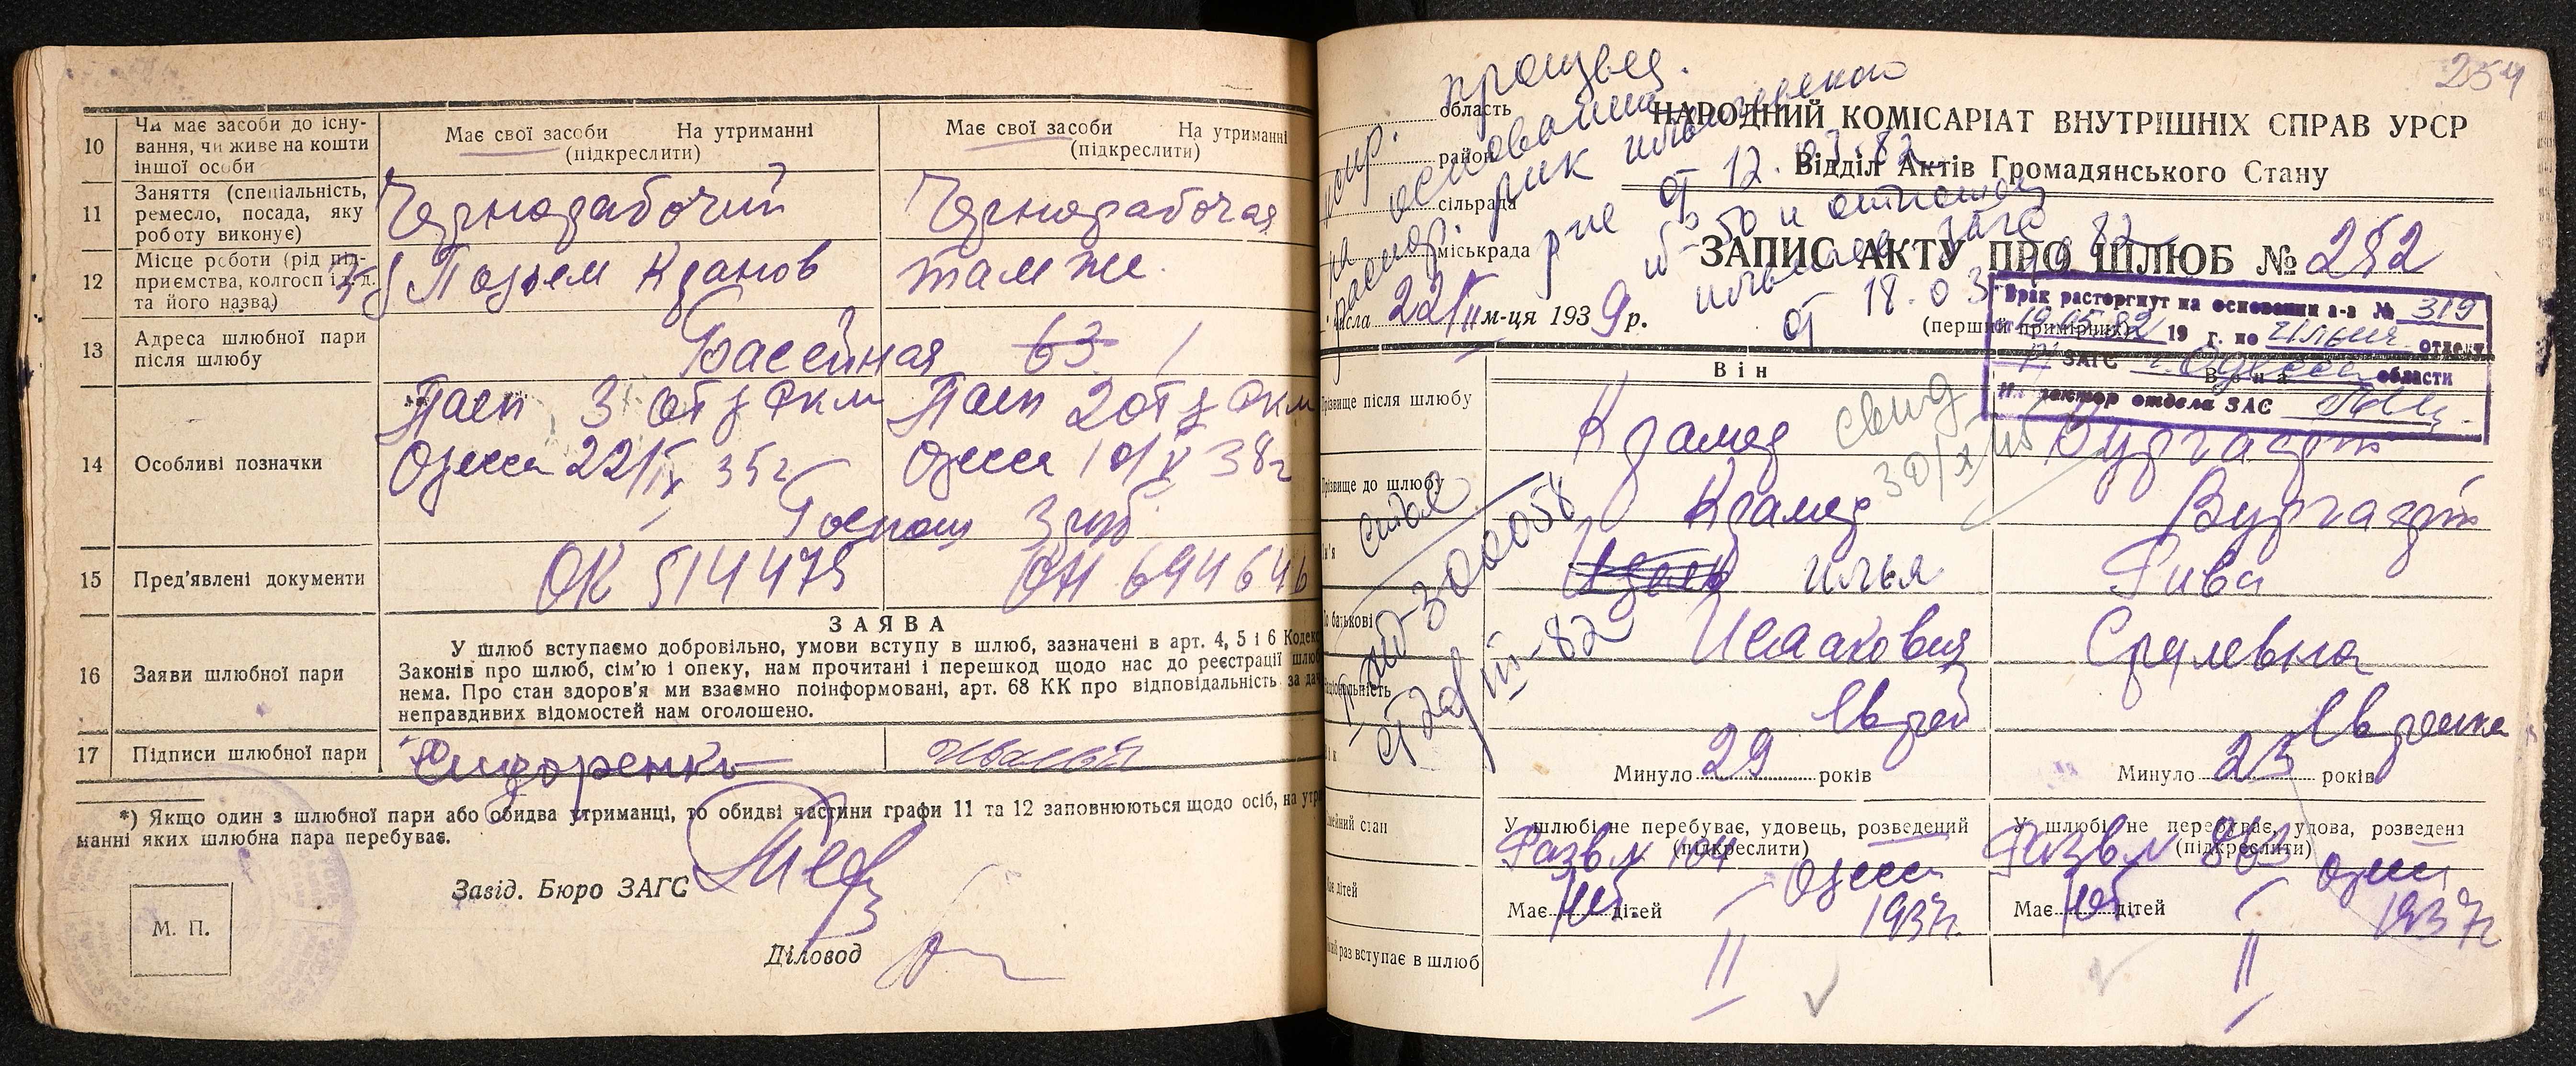 10 Чи має засоби до існу-
вання, чи живе на кошти
іншої особи
Має свої засоби На утриманні
(підкреслити)
Має свої засоби На утриманні
(підкреслити)
11 Заняття (спеціальність,
ремесло, посада, яку
роботу виконує)
Чернорабочий
Чернорабочая
12 Місце роботи (рід під-
приємства, колгосп і т. д.
та його назва)
Кранов
там же.
13 Адреса шлюбної пари
після шлюбу
Бассейная 63
14 Особливі позначки
Пасп 3 от
Одесса 22/IX 35 г
Пасп 2 от
Одесса 10/V 38 г
Госпош 3 руб.
15 Пред'явлені документи
ОК 514475
694646
16 Заяви шлюбної пари
ЗАЯВА
У шлюб вступаємо добровільно, умови вступу в шлюб, зазначені в арт. 4, 5 і 6 Кодек
Законів про шлюб, сім'ю і опеку, нам прочитані і перешкод щодо нас до реєстрації шлю
нема. Про стан здоров'я ми взаємно поінформовані, арт. 68 КК про відповідальність за да
неправдивих відомостей нам оголошено.
17 Підписи шлюбної пари
Сидоренко
*) Якщо один з шлюбної пари або обидва утриманці, то обидві частини графи 11 та 12 заповнюються щодо осіб, на утри
манні яких шлюбна пара перебуває.
Завід. Бюро ЗАГС
М. П.
Діловод
254
область
район
сільрада
міськрада
на основании
от 12.03.82
№ 50 и
от 18.03.82
НАРОДНИЙ КОМІСАРІАТ ВНУТРІШНІХ СПРАВ УРСР
Відділ Актів Громадянського Стану
ЗАПИС АКТУ ПРО ШЛЮБ № 252
числа 22/II м-ця 1939 р.
(перший примірник)
Брак расторгнут на основании а-з № 319
от 19.05.82 19 г. по Ильич. отделу
ЗАГС г. Одесса области
Инспектор отдела ЗАГС
Він
Вона
Прізвище після шлюбу
Крамер
Вургафт
свид
30/XI 45
Прізвище до шлюбу
Крамер
Вургафт
Ім'я
Илья
Рива
По батькові
Исаакович
Срулевна
300058
Національність
Еврей
Еврейка
Вік
Минуло 29 років
Минуло 23 років
Сімейний стан
У шлюбі не перебуває, удовець, розведений
(підкреслити)
Разв № 104 Одесса
1937 г.
У шлюбі не перебуває, удова, розведена
(підкреслити)
Разв № 863 Одесса
1937 г
Має дітей
Має нет дітей
Має нет дітей
раз вступає в шлюб
II
II